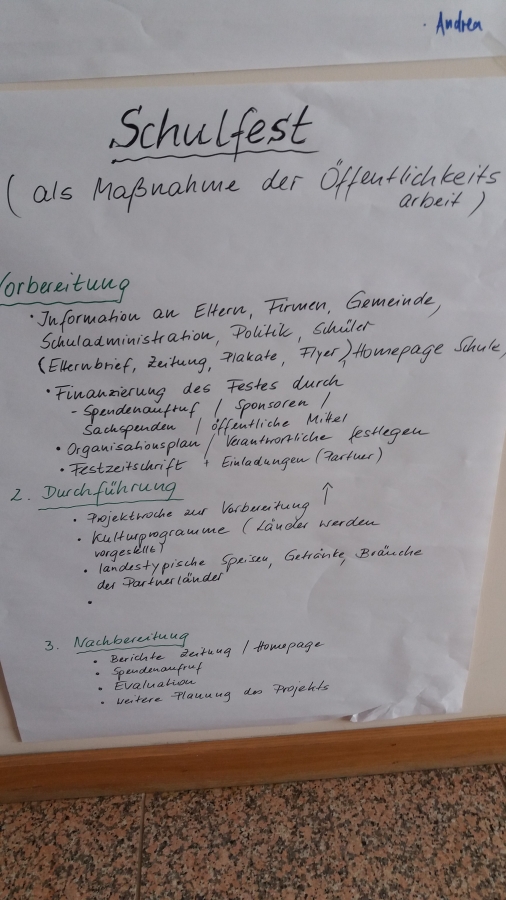 · Andrea
Schulfest
( als Maßnahme der Öffentlichkeits
arbeit )
Vorbereitung
· Information an Eltern, Firmen, Gemeinde,
Schuladministration, Politik, Schüler
(Elternbrief, Zeitung, Plakate, Flyer), Homepage Schule,
· Finanzierung des Festes durch
- Spendenaufruf / Sponsoren /
Sachspenden / öffentliche Mittel
· Organisationsplan / Verantwortliche festlegen
· Festzeitschrift + Einladungen (Partner)
2. Durchführung
· Projektwoche zur Vorbereitung ↑
· Kulturprogramme (Länder werden
vorgestellt)
· landestypische Speisen, Getränke, Bräuche
der Partnerländer
·
3. Nachbereitung
· Berichte Zeitung / Homepage
· Spendenaufruf
· Evaluation
· weitere Planung des Projekts